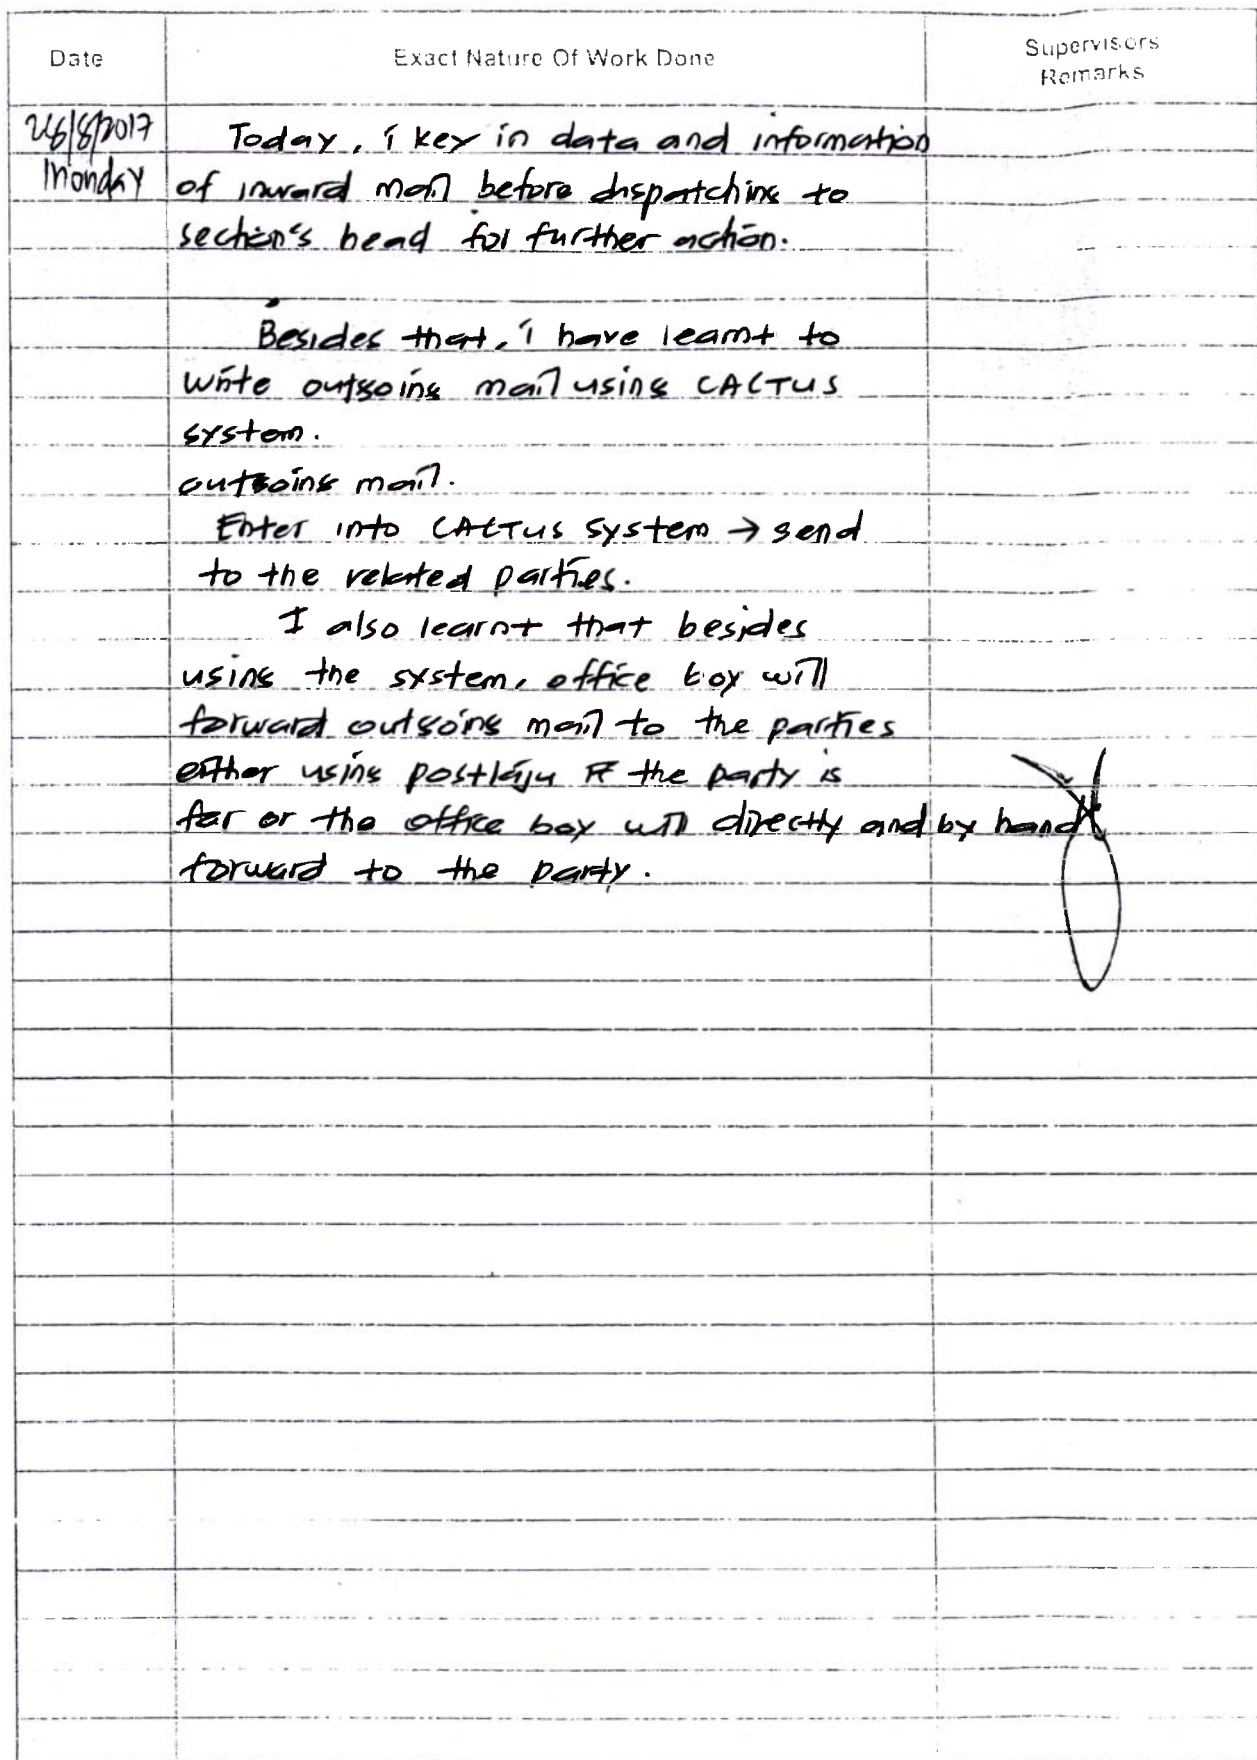 Date
Exact Nature Of Work Done
Supervisors
Remarks
28/8/2017
Monday
Today, i key in data and information
of inward mail before dispatching to
section's head for further action.
Besides that, i have learnt to
write outgoing mail using CACTUS
system.
outgoing mail.
Enter into CACTUS system → send
to the related parties.
I also learnt that besides
using the system, office boy will
forward outgoing mail to the parties
either using postlaju if the party is
far or the office boy will directly and by hand
forward to the party.